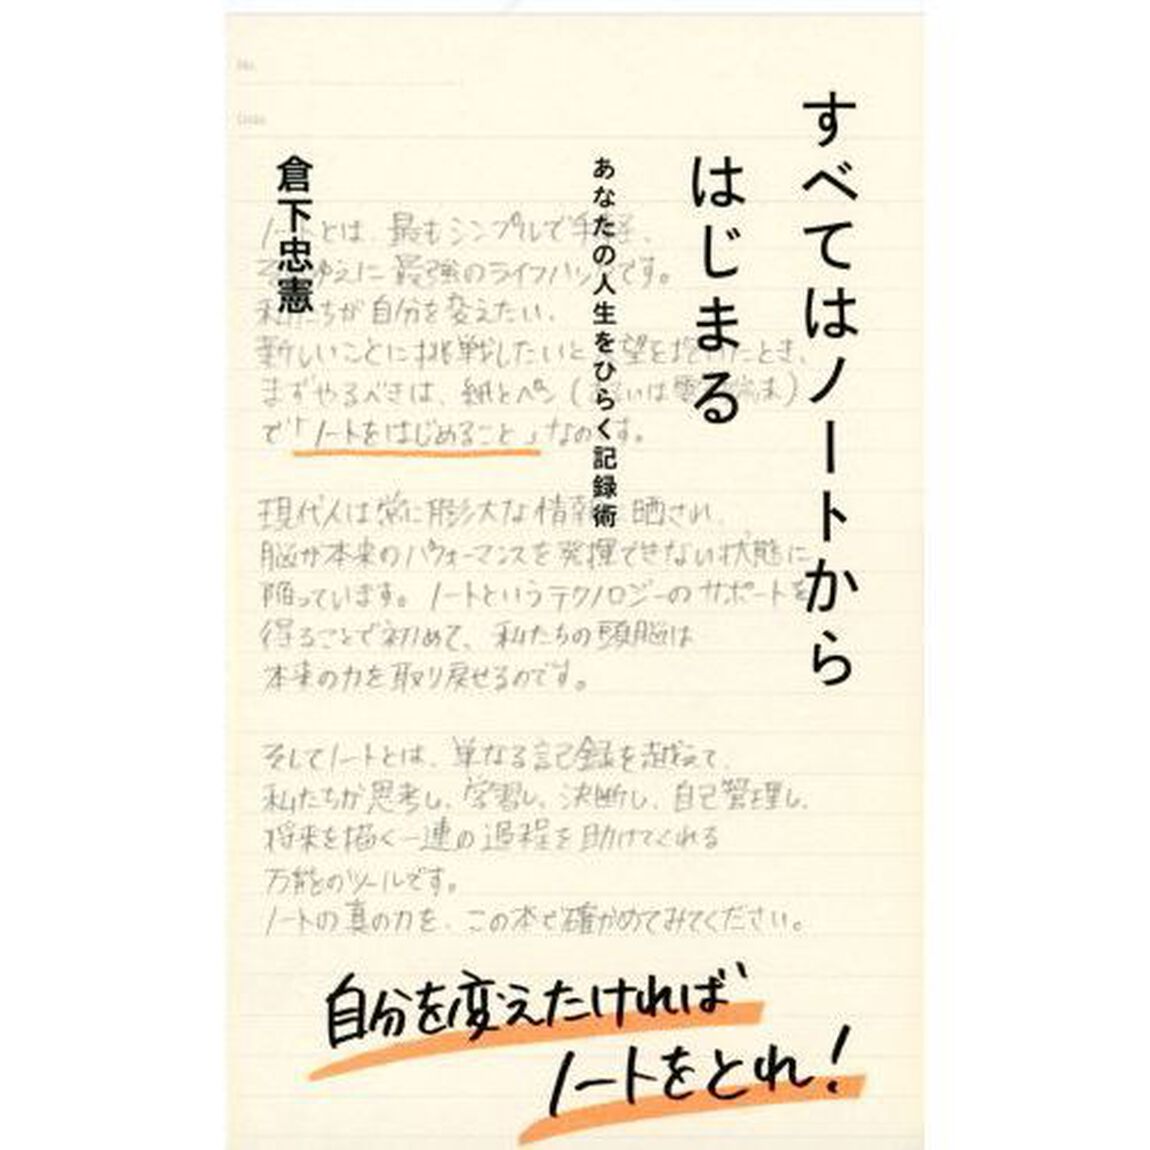 すべてはノートから
はじまる
あなたの人生をひらく記録術
倉下忠憲
No.
Date
ノートとは、最もシンプルで手軽、
ゆえに最強のライフハックです。
私たちが自分を変えたい、
新しいことに挑戦したいと 望を いたとき、
まずやるべきは、紙とペン( いは 端末)
で「ノートをはじめること」なのです。
現代人は常に膨大な情報 晒され、
脳が本来のパフォーマンスを発揮できない状態に
陥っています。ノートというテクノロジーのサポートを
得ることで初めて、私たちの頭脳は
本来の力を取り戻せるのです。
そしてノートとは、単なる記録を越えて、
私たちが思考し、学習し、決断し、自己管理し、
将来を描く一連の過程を助けてくれる
万能のツールです。
ノートの真の力を、この本で確かめてみてください。
自分を変えたければ
ノートをとれ!